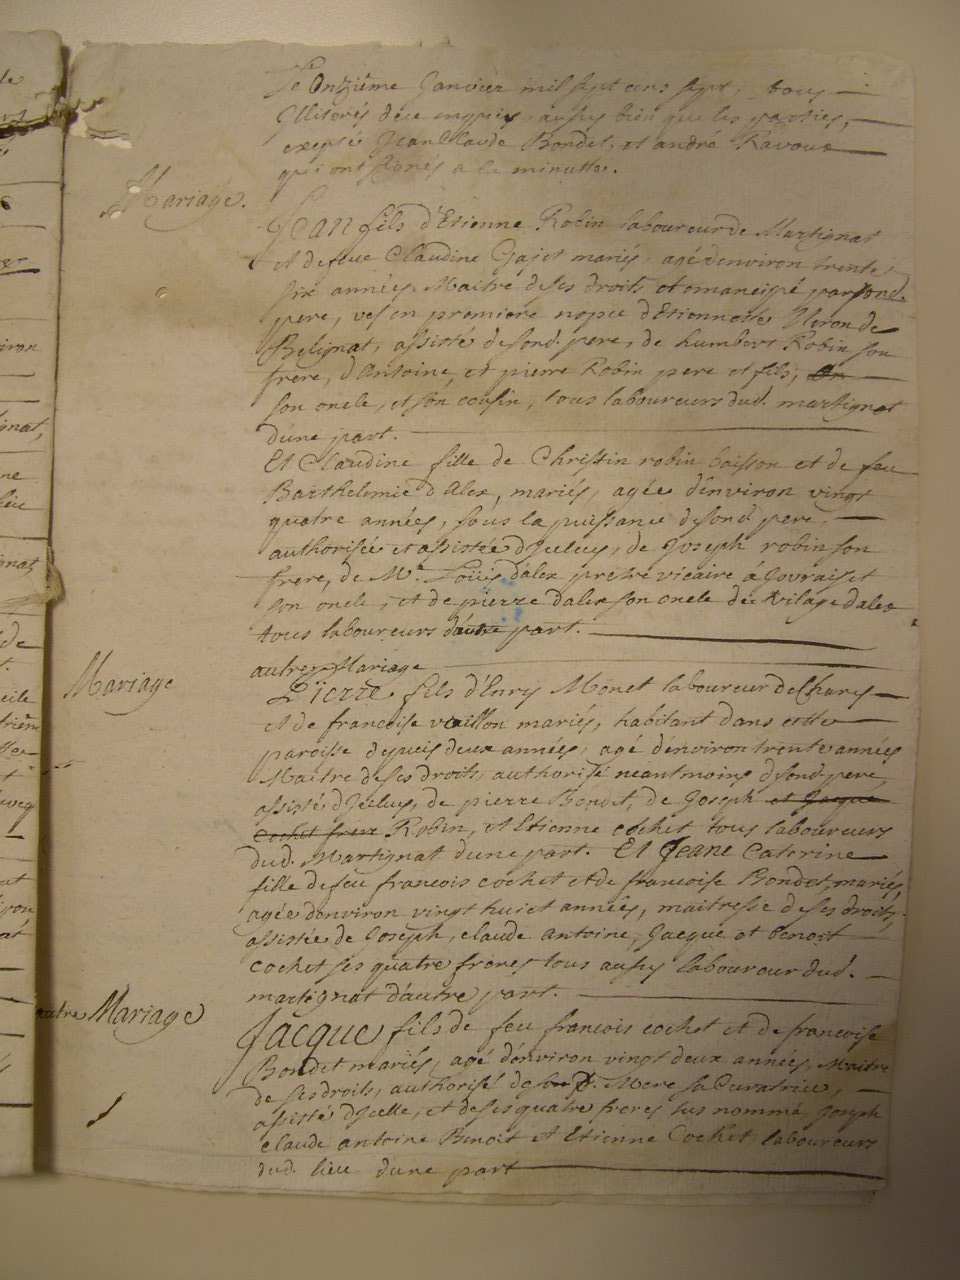 Le Onziême Janvier mil sept cens sept, tous
Illiterés de ce enquis, aussy bien que les parties,
excepté Jean Claude Bondet, et andré Ravoux
qui ont signés a la minutte.
Mariage.
Jean fils d'Etienne Robin laboureur de Martignat
et de feue Claudine Gajet mariés, agé d'environ trente
six années, Maitre de ses droits et emancipé par son d.
pere, vef en premiere nopce d'Etiennette
Belignat, assisté de son d. pere, de humbert Robin son
frere, d'Antoine, et pierre Robin pere et fils,
son oncle, et son cousin, tous laboureurs dud. martignat
d'une part.
Et Claudine fille de Christin robin baisson et de feu
Barthelemie d'Alex, mariés, agée d'environ vingt
quatre années, sous la puissance de son d. pere,
authorisée et assistée d'Jceluy, de Joseph robin son
frere, de Mre. Loüis dalex pretre vicaire à
son oncle, et de pierre dalex son oncle du vilage dalex
tous laboureurs d'autre part.
autre Mariage
Mariage
Pierre fils d'Enry Monet laboureur de
et de francoise vuaillon mariés, habitant dans cette
paroisse depuis deux années, agé d'environ trente années
Maitre de ses droits, authorisé neantmoins de son d. pere,
assisté d'Jceluy, de pierre Bondet, de Joseph et Jacque
Cochet frere Robin, et Etienne cochet tous laboureurs
dud. Martignat d'une part. Et Jeane Caterine
fille de feu francois cochet et de francoise Bondet, mariés,
agée d'environ vingt huict années, maitresse de ses droits,
assistée de Joseph, claude antoine, Jacque et benoit
cochet ses quatre freres tous aussy laboureur dud.
martignat d'autre part.
autre Mariage
Jacque fils de feu francois cochet et de francoise
Bondet mariés, agé d'environ vingt deux années, Maitre
de ses droits, authorisé de Mere sa Curatrice,
assisté d'Jcelle, et de ses quatre freres sus nommé Joseph
claude antoine Benoit et Etienne Cochet laboureurs
dud. lieu d'une part